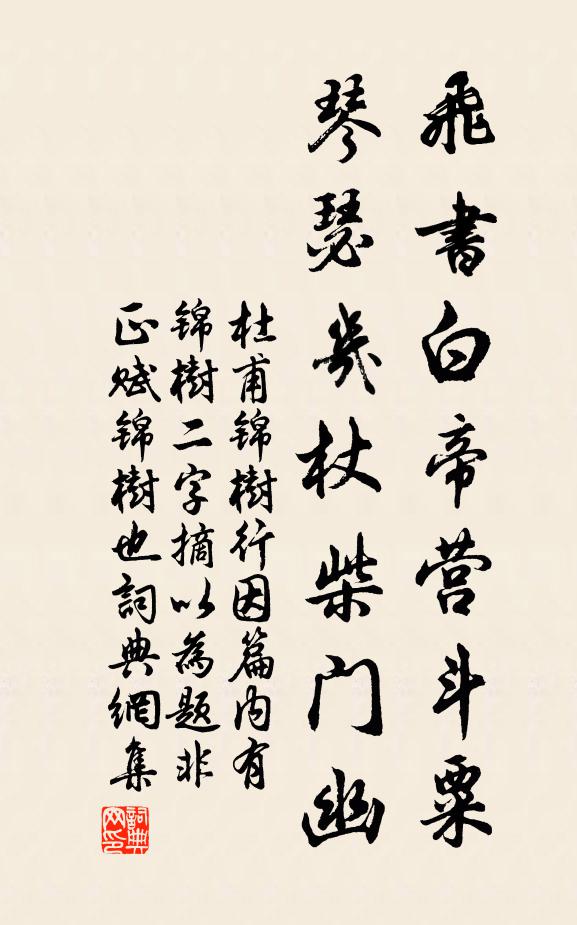 飛書白帝營斗粟
琴瑟幾杖柴門幽
杜甫錦樹行因篇內有
錦樹二字摘以為題非
正賦錦樹也詞典網集
詞典網印